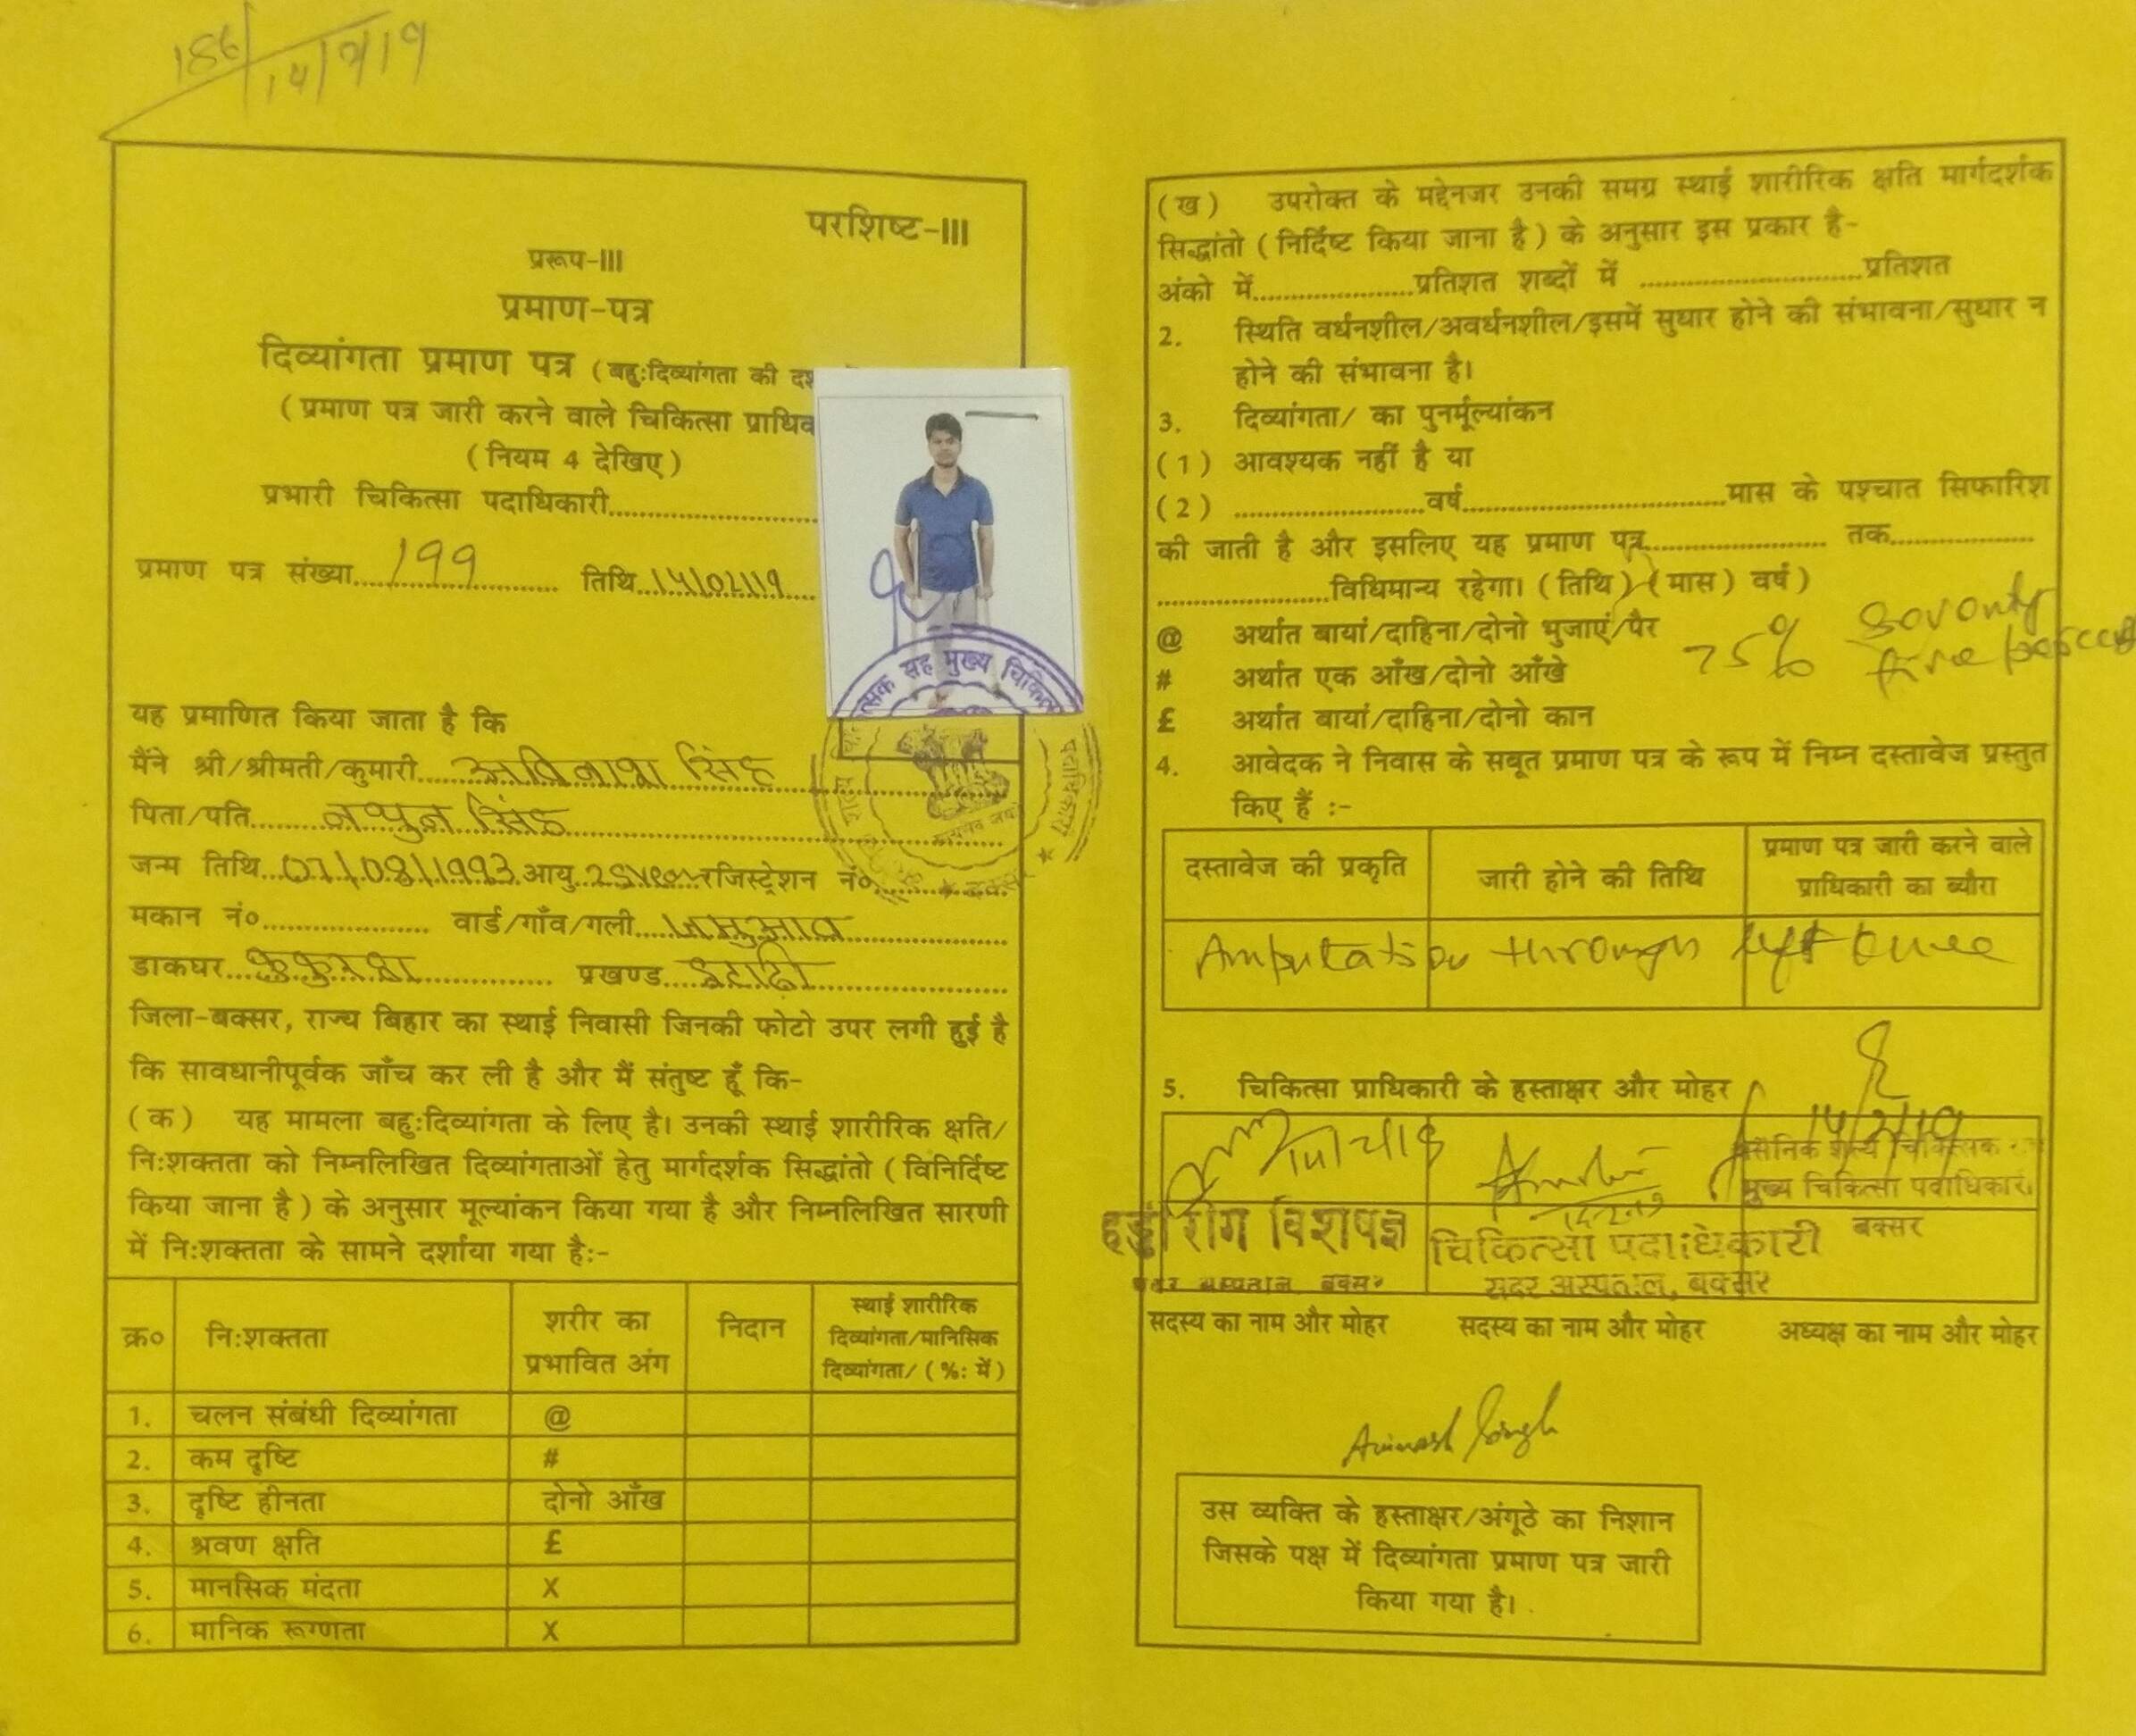 186/14/2/19
परशिष्ट-III
प्ररूप-III
प्रमाण-पत्र
दिव्यांगता प्रमाण पत्र (बहु:दिव्यांगता की दश
(प्रमाण पत्र जारी करने वाले चिकित्सा प्राधिक
(नियम 4 देखिए)
प्रभारी चिकित्सा पदाधिकारी
प्रमाण पत्र संख्या 199 तिथि 14/02/19
यह प्रमाणित किया जाता है कि
मैंने श्री/श्रीमती/कुमारी अविनाश सिंह
पिता/पति नथुन सिंह
जन्म तिथि 07/08/1993 आयु 25 year रजिस्ट्रेशन नं०
मकान नं० वार्ड/गाँव/गली
डाकघर कुकुढ़ा प्रखण्ड इटाढ़ी
जिला-बक्सर, राज्य बिहार का स्थाई निवासी जिनकी फोटो उपर लगी हुई है
कि सावधानीपूर्वक जाँच कर ली है और मैं संतुष्ट हूँ कि-
(क) यह मामला बहु:दिव्यांगता के लिए है। उनकी स्थाई शारीरिक क्षति/
नि:शक्तता को निम्नलिखित दिव्यांगताओं हेतु मार्गदर्शक सिद्धांतो (विनिर्दिष्ट
किया जाना है) के अनुसार मूल्यांकन किया गया है और निम्नलिखित सारणी
में नि:शक्तता के सामने दर्शाया गया है:-
क्र० नि:शक्तता शरीर का प्रभावित अंग निदान स्थाई शारीरिक दिव्यांगता/मानिसिक दिव्यांगता/ (%: में)
1. चलन संबंधी दिव्यांगता @
2. कम दृष्टि #
3. दृष्टि हीनता दोनो आँख
4. श्रवण क्षति £
5. मानसिक मंदता X
6. मानिक रूग्णता X
सह मुख्य चिकित्
(ख) उपरोक्त के मद्देनजर उनकी समग्र स्थाई शारीरिक क्षति मार्गदर्शक
सिद्धांतो (निर्दिष्ट किया जाना है) के अनुसार इस प्रकार है-
अंको में प्रतिशत शब्दों में प्रतिशत
2. स्थिति वर्धनशील/अवर्धनशील/इसमें सुधार होने की संभावना/सुधार न
होने की संभावना है।
3. दिव्यांगता/ का पुनर्मूल्यांकन
(1) आवश्यक नहीं है या
(2) वर्ष मास के पश्चात सिफारिश
की जाती है और इसलिए यह प्रमाण पत्र तक
विधिमान्य रहेगा। (तिथि) (मास) वर्ष)
@ अर्थात बायां/दाहिना/दोनो भुजाएं/पैर
75% Seventy
five
# अर्थात एक आँख/दोनो आँखे
£ अर्थात बायां/दाहिना/दोनो कान
4. आवेदक ने निवास के सबूत प्रमाण पत्र के रूप में निम्न दस्तावेज प्रस्तुत
किए हैं :-
दस्तावेज की प्रकृति जारी होने की तिथि प्रमाण पत्र जारी करने वाले प्राधिकारी का ब्यौरा
Amputation through left knee
5. चिकित्सा प्राधिकारी के हस्ताक्षर और मोहर
14/2/19
असैनिक शल्य चिकित्सक
मुख्य चिकित्सा पदाधिकारी
बक्सर
हड्डी रोग विशेषज्ञ चिकित्सा पदाधिकारी
सदर अस्पताल बक्सर सदर अस्पताल, बक्सर
सदस्य का नाम और मोहर सदस्य का नाम और मोहर अध्यक्ष का नाम और मोहर
Avinash Singh
उस व्यक्ति के हस्ताक्षर/अंगूठे का निशान
जिसके पक्ष में दिव्यांगता प्रमाण पत्र जारी
किया गया है।